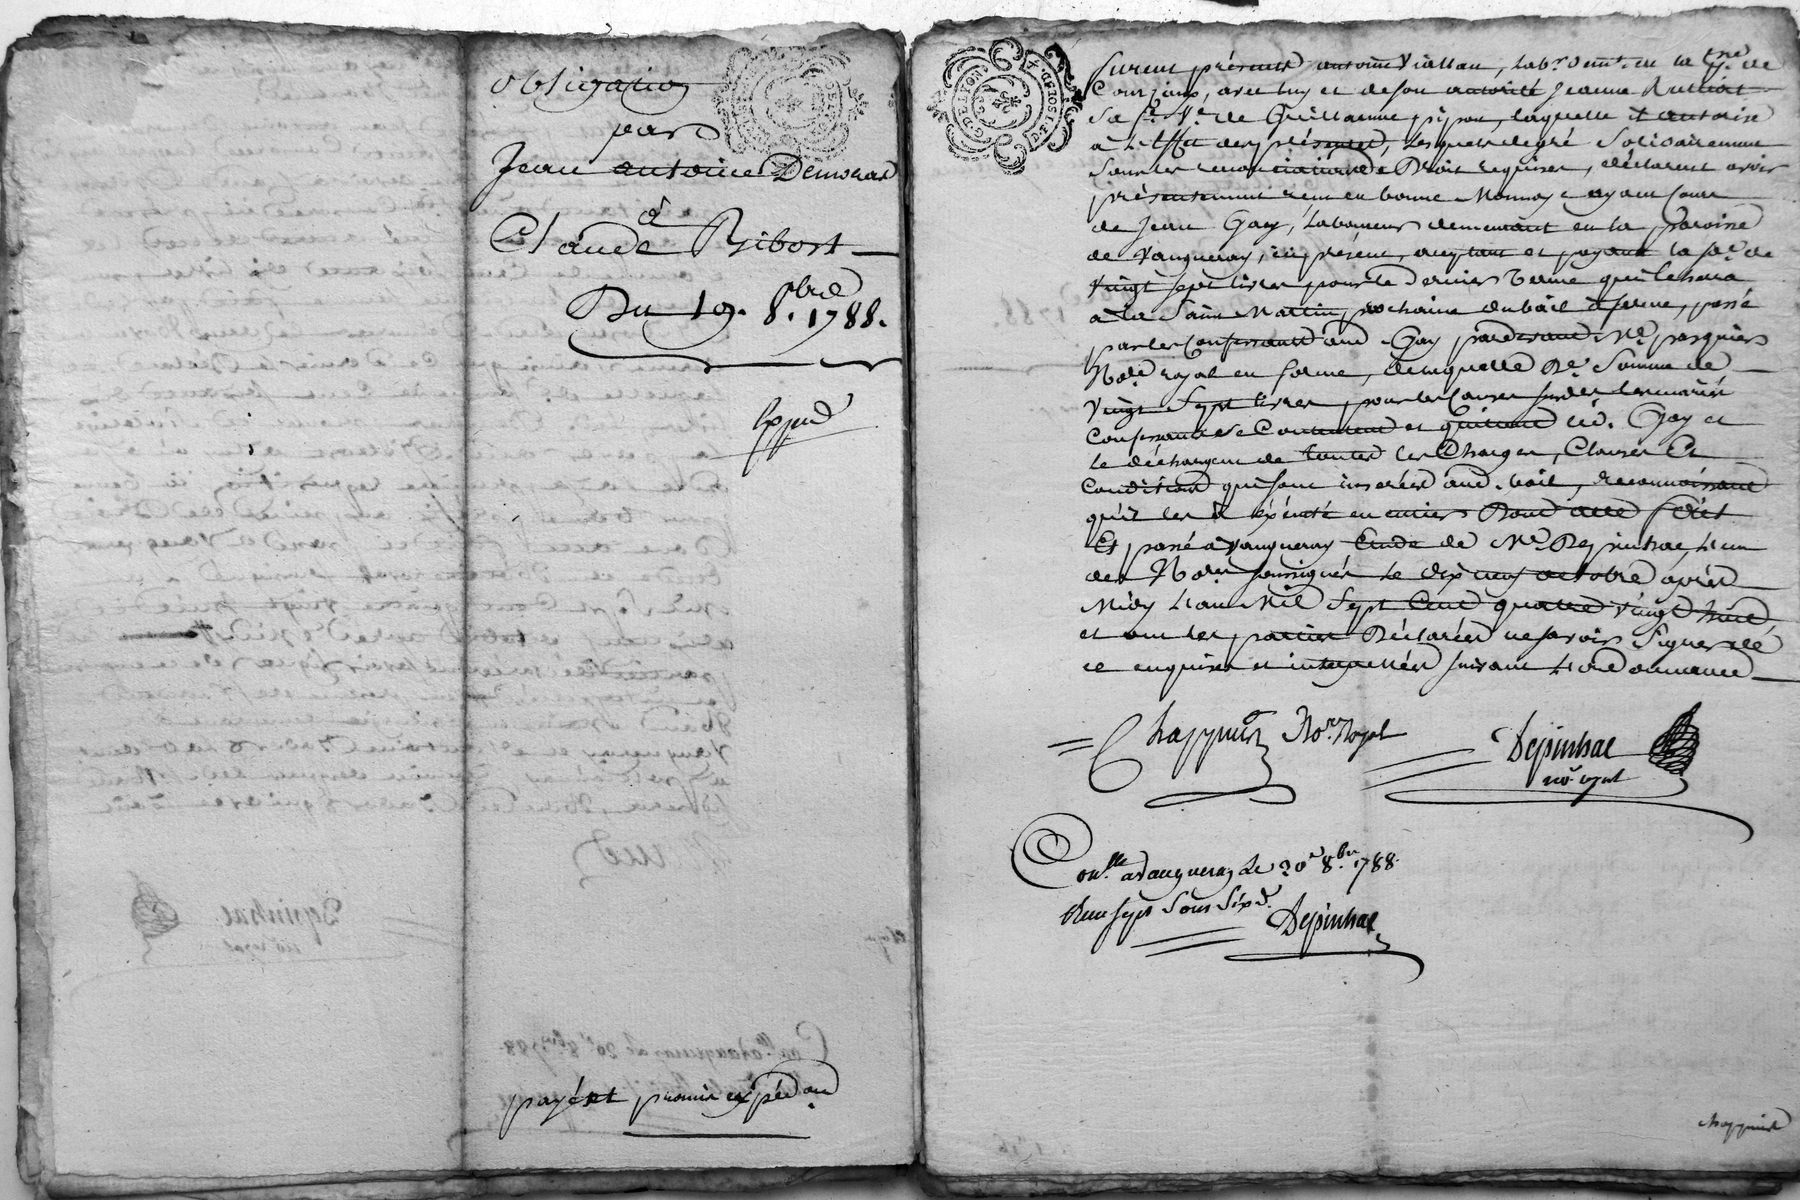 obligation
par
Jean antoine Demoras
à
Claude Ribost
Du 19. 8.bre 1788.
Exped
payé et promis expéd on
furent présents antoine Viallan, lab.r dem.t en la de
Courzieux, avec luy et de son autorité Jeanne
Sa f.e V.e de Guillaume pipon, laquelle il autorise
à l'effet des présentes, lesquels de gré Solidairement
Sous les renonciations de Droit requises, déclarent avoir
présentement reçu en bonne Monnoye ayant Cours
de Jean Gay, laboureur demeurant en la paroisse
de Vaugneray, ici présent, acceptant et payant la so.e de
vingt sept livres pour le dernier terme qui échera
à la Saint Martin prochaine du bail à ferme, passé
par les Confessants aud. Gay pardevant M.e pasquier
No.re royal en forme, de laquelle D.e Somme de
vingt Sept livres, pour les Causes susdites les mariés
Confessants Se Contentent et quittent led. Gay et
le déchargent de toutes les Charges, Clauses et
Conditions qui sont insérées aud. bail, reconnoissant
qu'il les a éxécuté en entier Dont acte fait
Et passé à Vaugneray Etude de M.e Depinhac, L'un
des No.res soussignés le dix neuf octobre après
Midy L'an Mil Sept Cent quatre vingt huit,
et ont les parties Déclarées ne savoir Signer de
ce enquises et interpellées suivant L'ordonnance
Chappuis No.re Royal
Depinhac
no.re royal
Con.lle a Vaugneray le 20 8.bre 1788.
Reçu sept Sous Six d. Depinhac
chappuis